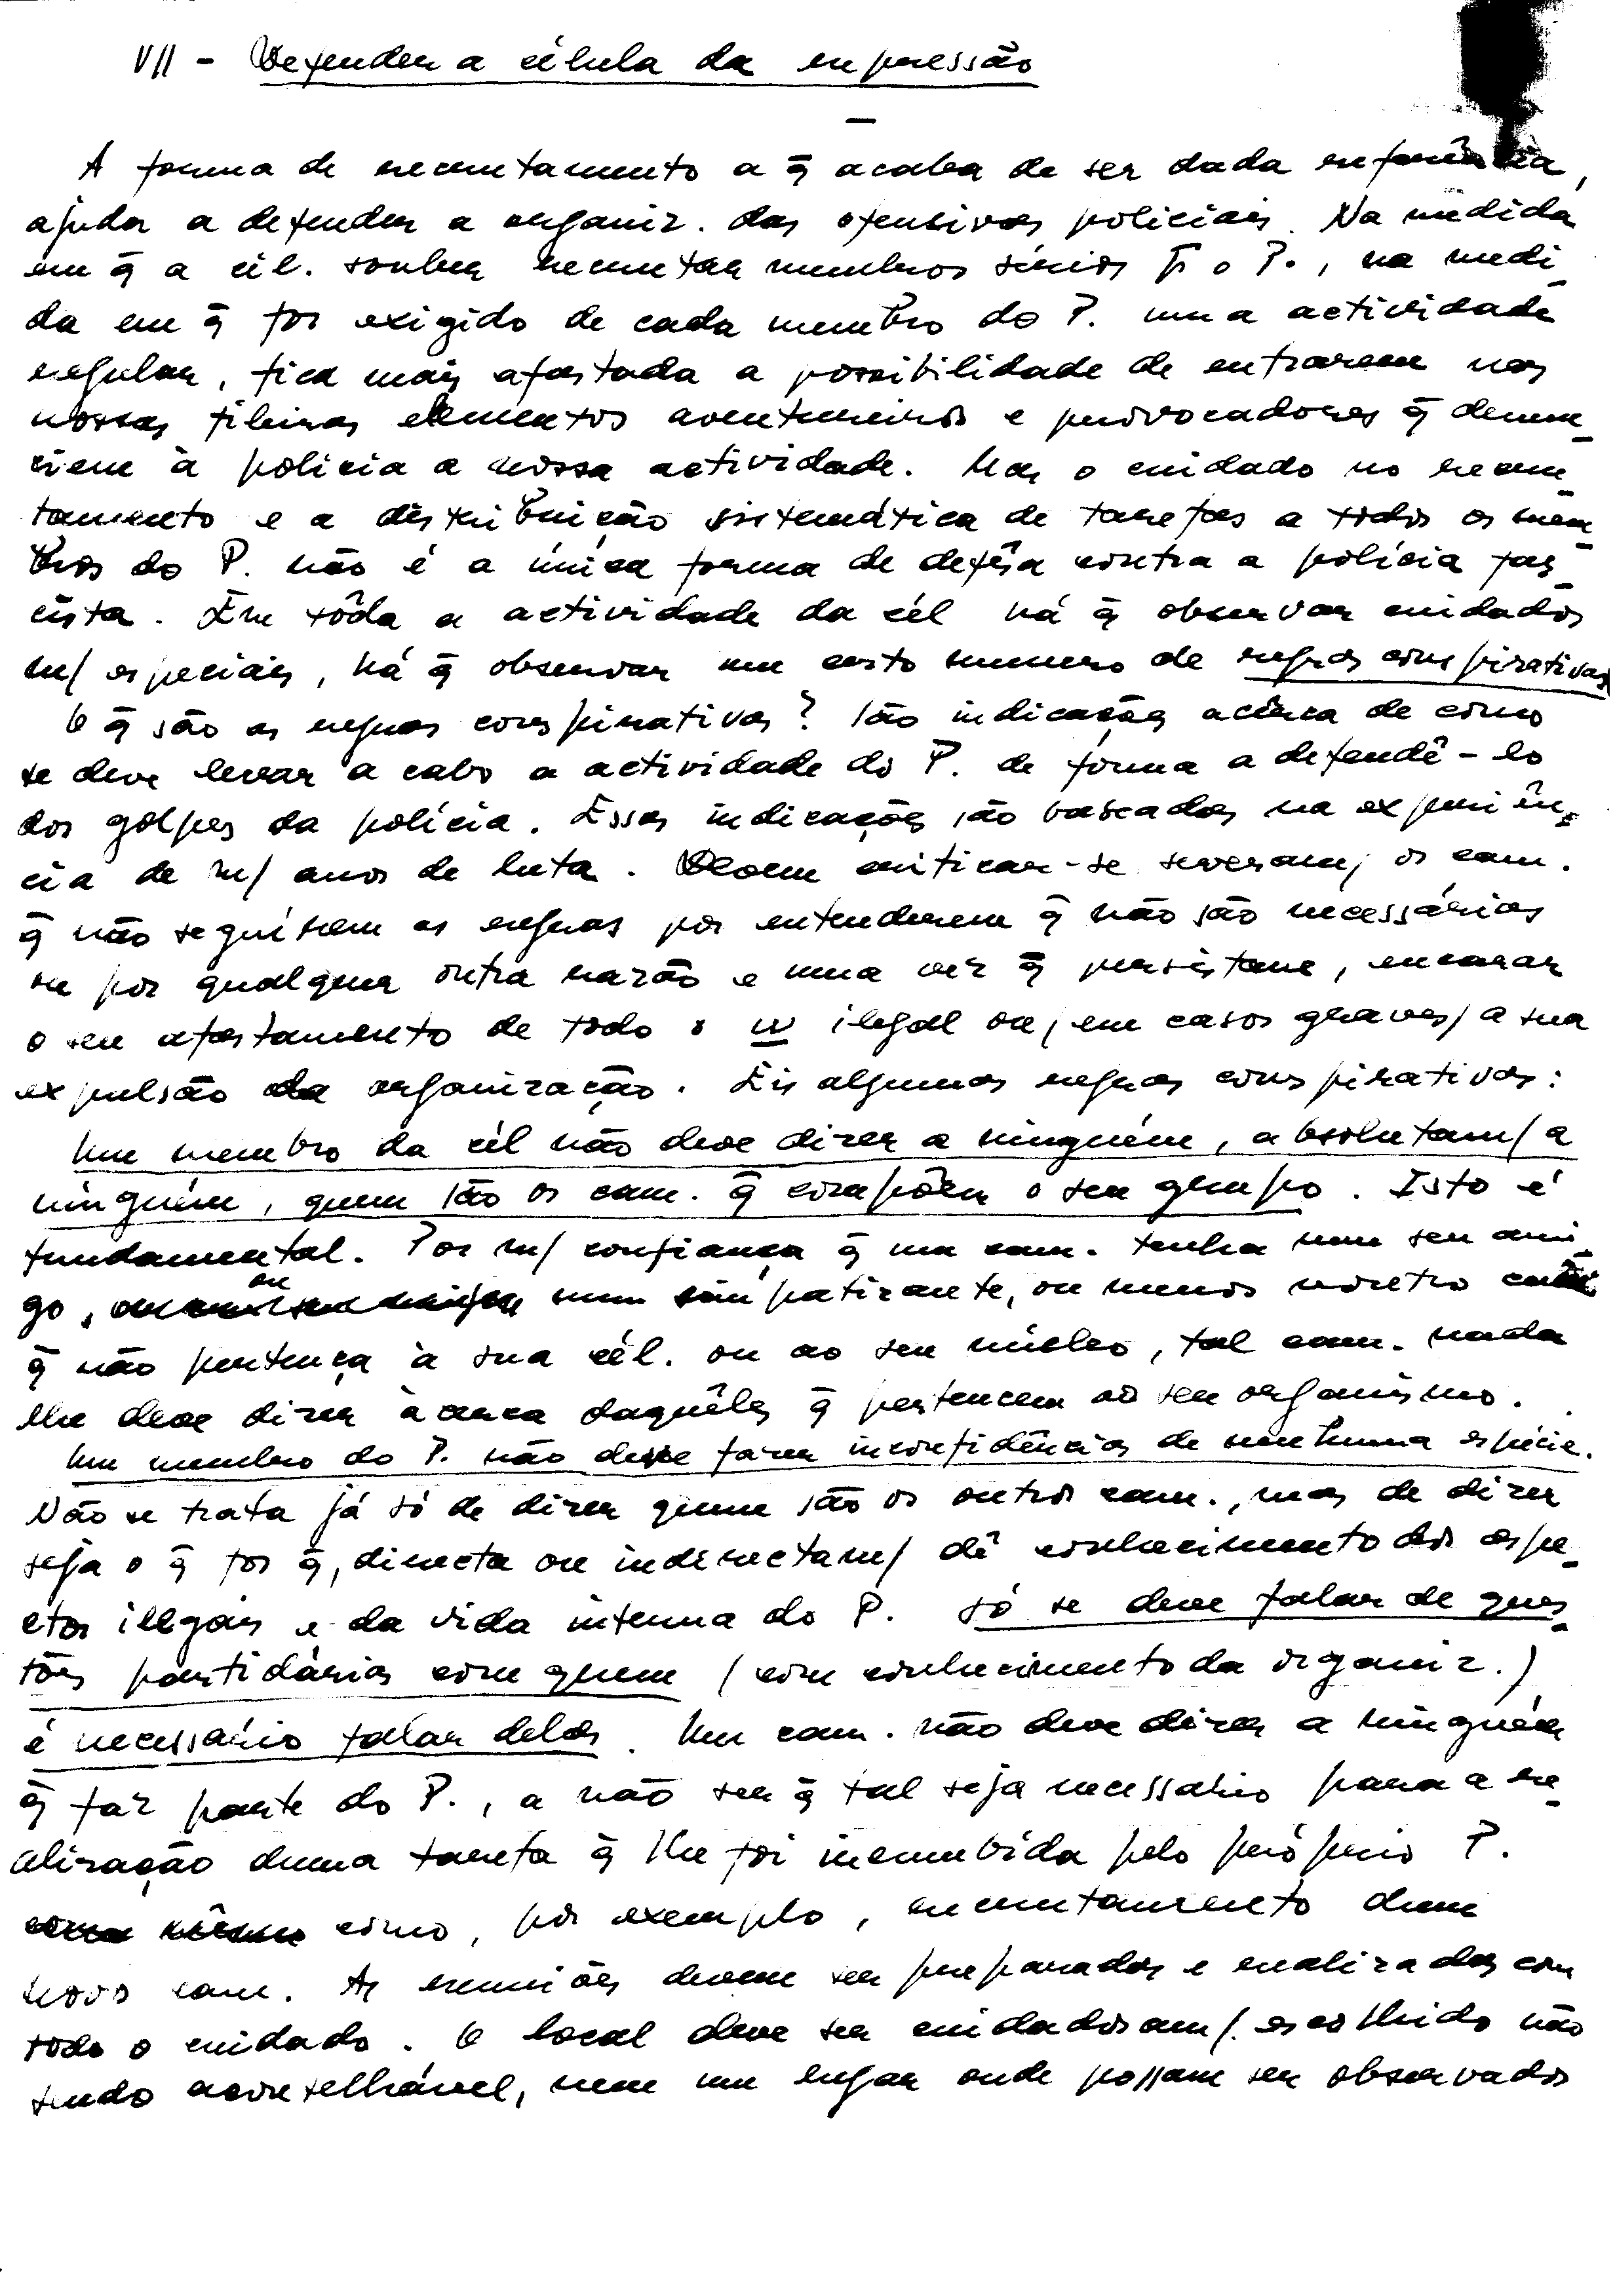 VII - Defender a célula da repressão
A forma de recrutamento a q̃ acaba de ser dada referência,
ajuda a defender a organiz. das ofensivas policiais. Na medida
em q̃ a cél. souber recrutar membros sérios p̃ o P., na medi-
da em q̃ for exigido de cada membro do P. uma actividade
regular, fica mais afastada a possibilidade de entrarem nas
nossas fileiras elementos aventureiros e provocadores q̃ denun-
ciem à policia a nossa actividade. Mas o cuidado no recru-
tamento e a distribuição sistemática de tarefas a todos os mem-
bros do P. não é a única forma de defêsa contra a polícia fas-
cista. Em tôda a actividade da cél há q̃ observar cuidados
m/ especiais, há q̃ observar um certo numero de regras conspirativas
O q̃ são as regras conspirativas? São indicações acêrca de como
se deve levar a cabo a actividade do P. de forma a defendê-lo
dos golpes da polícia. Essas indicações são baseadas na experiên-
cia de m/ anos de luta. Devem criticar-se severam/ os cam.
q̃ não seguirem as regras por entenderem q̃ não são necessárias
ou por qualquer outra razão e uma vez q̃ persistam, encarar
o seu afastamento de todo o w ilegal ou, em casos graves, a sua
expulsão da organização. Eis algumas regras conspirativas:
Um membro da cél não deve dizer a ninguém, absolutam/ a
ninguém, quem são os cam. q̃ compõem o seu grupo. Isto é
fundamental. Por m/ confiança q̃ um cam. tenha num seu ami-
go, ou num simpatizante, ou mesmo noutro
q̃ não pertença à sua cél. ou ao seu núcleo, tal cam. nada
lhe deve dizer àcerca daquêles q̃ pertencem ao seu organismo.
Um membro do P. não deve fazer inconfidências de nenhuma espécie.
Não se trata já só de dizer quem são os outros cam., mas de dizer
seja o q̃ for q̃, directa ou indirectam/ dê conhecimento dos aspe-
ctos illegais e da vida interna do P. Só se deve falar de ques-
tões partidárias com quem (com conhecimento da organiz.)
é necessário falar delas. Um cam. não deve dizer a ninguém
q̃ faz parte do P., a não ser q̃ tal seja necessário para a re-
alização duma tarefa q̃ lhe foi incumbida pelo próprio P.
como, por exemplo, recrutamento dum
novo cam. As reuniões devem ser preparadas e realizadas com
todo o cuidado. O local deve ser cuidadosam/. escolhido não
sendo aconselhável, nem um lugar onde possam ser observados